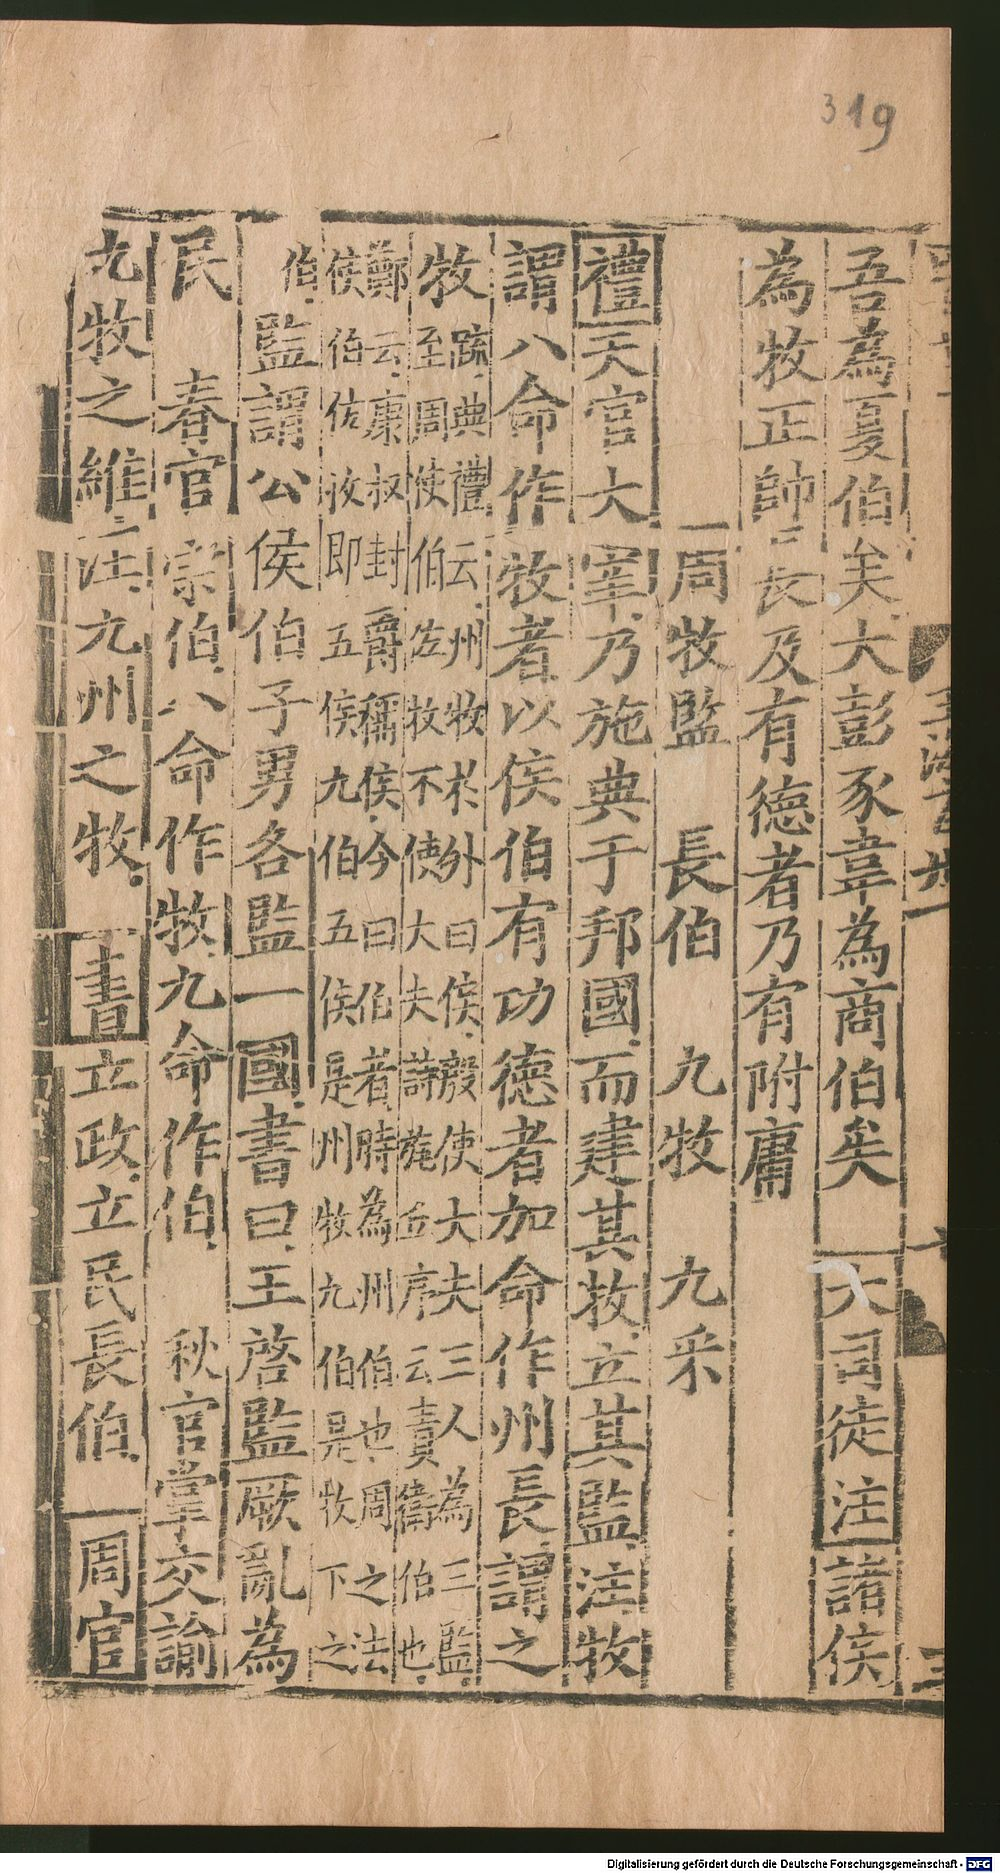 319
吾為夏伯矣大彭豕韋為商伯矣 大司徒注諸侯
為牧正帥長及有德者乃有附庸
周牧監 長伯 九牧 九采
禮天官大宰乃施典于邦國而建其牧立其監注牧
謂八命作牧者以侯伯有功德者加命作州長謂之
牧
疏典禮云州牧於外曰侯殷使大夫三人為三監
至周使伯佐牧不使大夫詩旄丘序云責衛伯也
鄭云康叔封爵稱侯今曰伯者時為州伯也周之法
侯伯佐牧即五侯九伯五侯是州牧九伯是牧下之
伯
監謂公侯伯子男各監一國書曰王啓監厥亂為
民 春官宗伯八命作牧九命作伯 秋官掌交諭
九牧之維注九州之牧 書立政立民長伯 周官
Digitalisierung gefördert durch die Deutsche Forschungsgemeinschaft - DFG